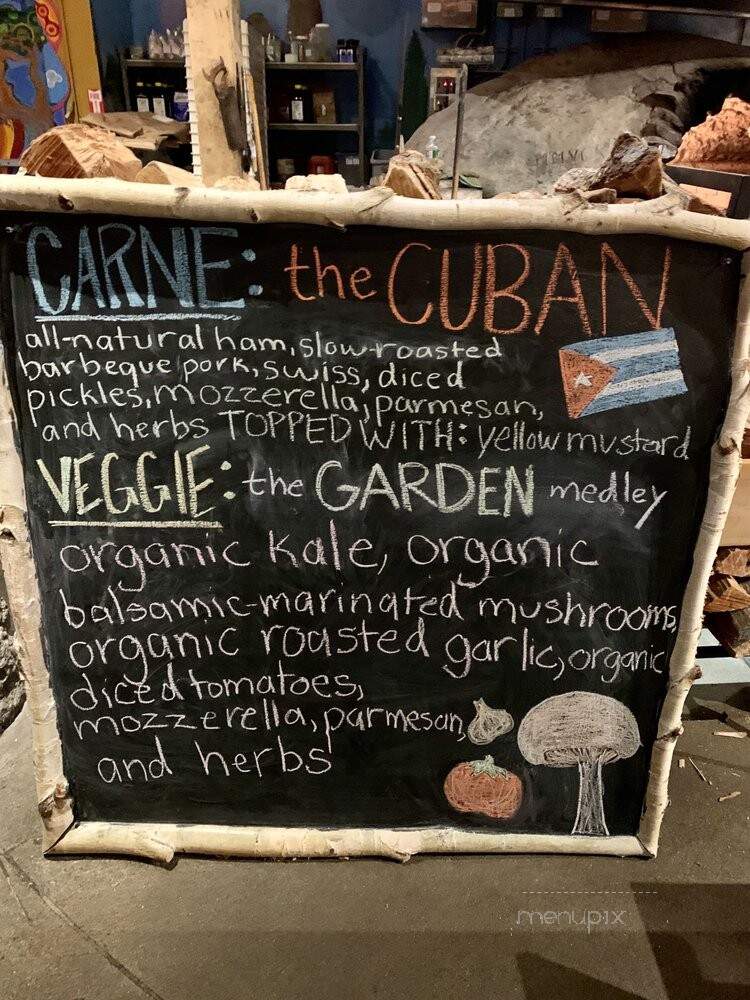 MMVI
CARNE: the CUBAN
all-natural ham, slow-roasted
barbeque pork, swiss, diced
pickles, mozzerella, parmesan,
and herbs TOPPED WITH: yellow mustard
VEGGIE: the GARDEN medley
organic kale, organic
balsamic-marinated mushrooms,
organic roasted garlic, organic
diced tomatoes,
mozzerella, parmesan,
and herbs
menupix